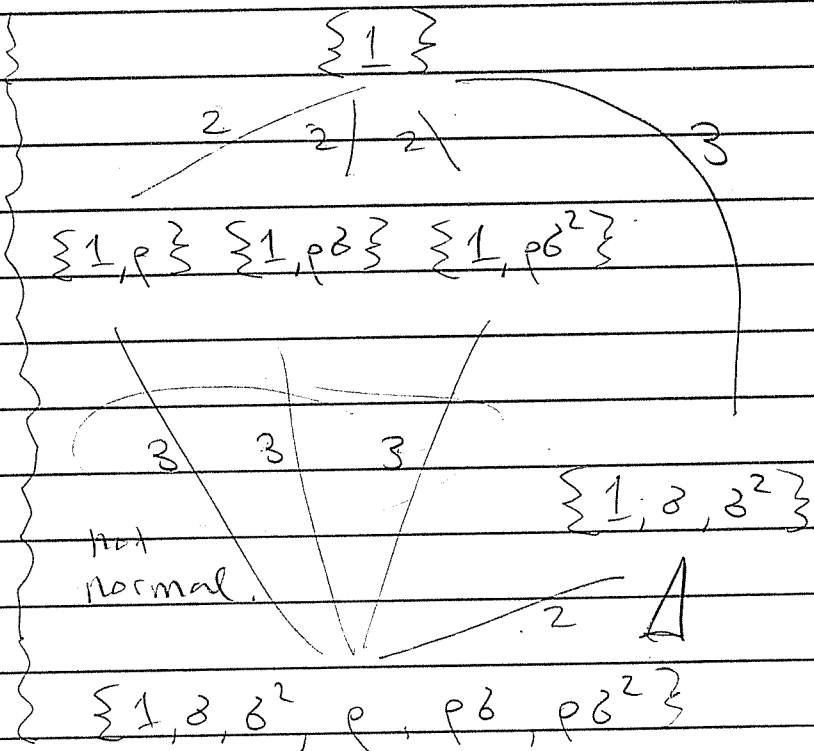 {1}
2 2 2 3
{1, ρ} {1, ρδ} {1, ρδ²}
3 3 3
{1, δ, δ²}
not
normal.
2 Δ
{1, δ, δ², ρ, ρδ, ρδ²}